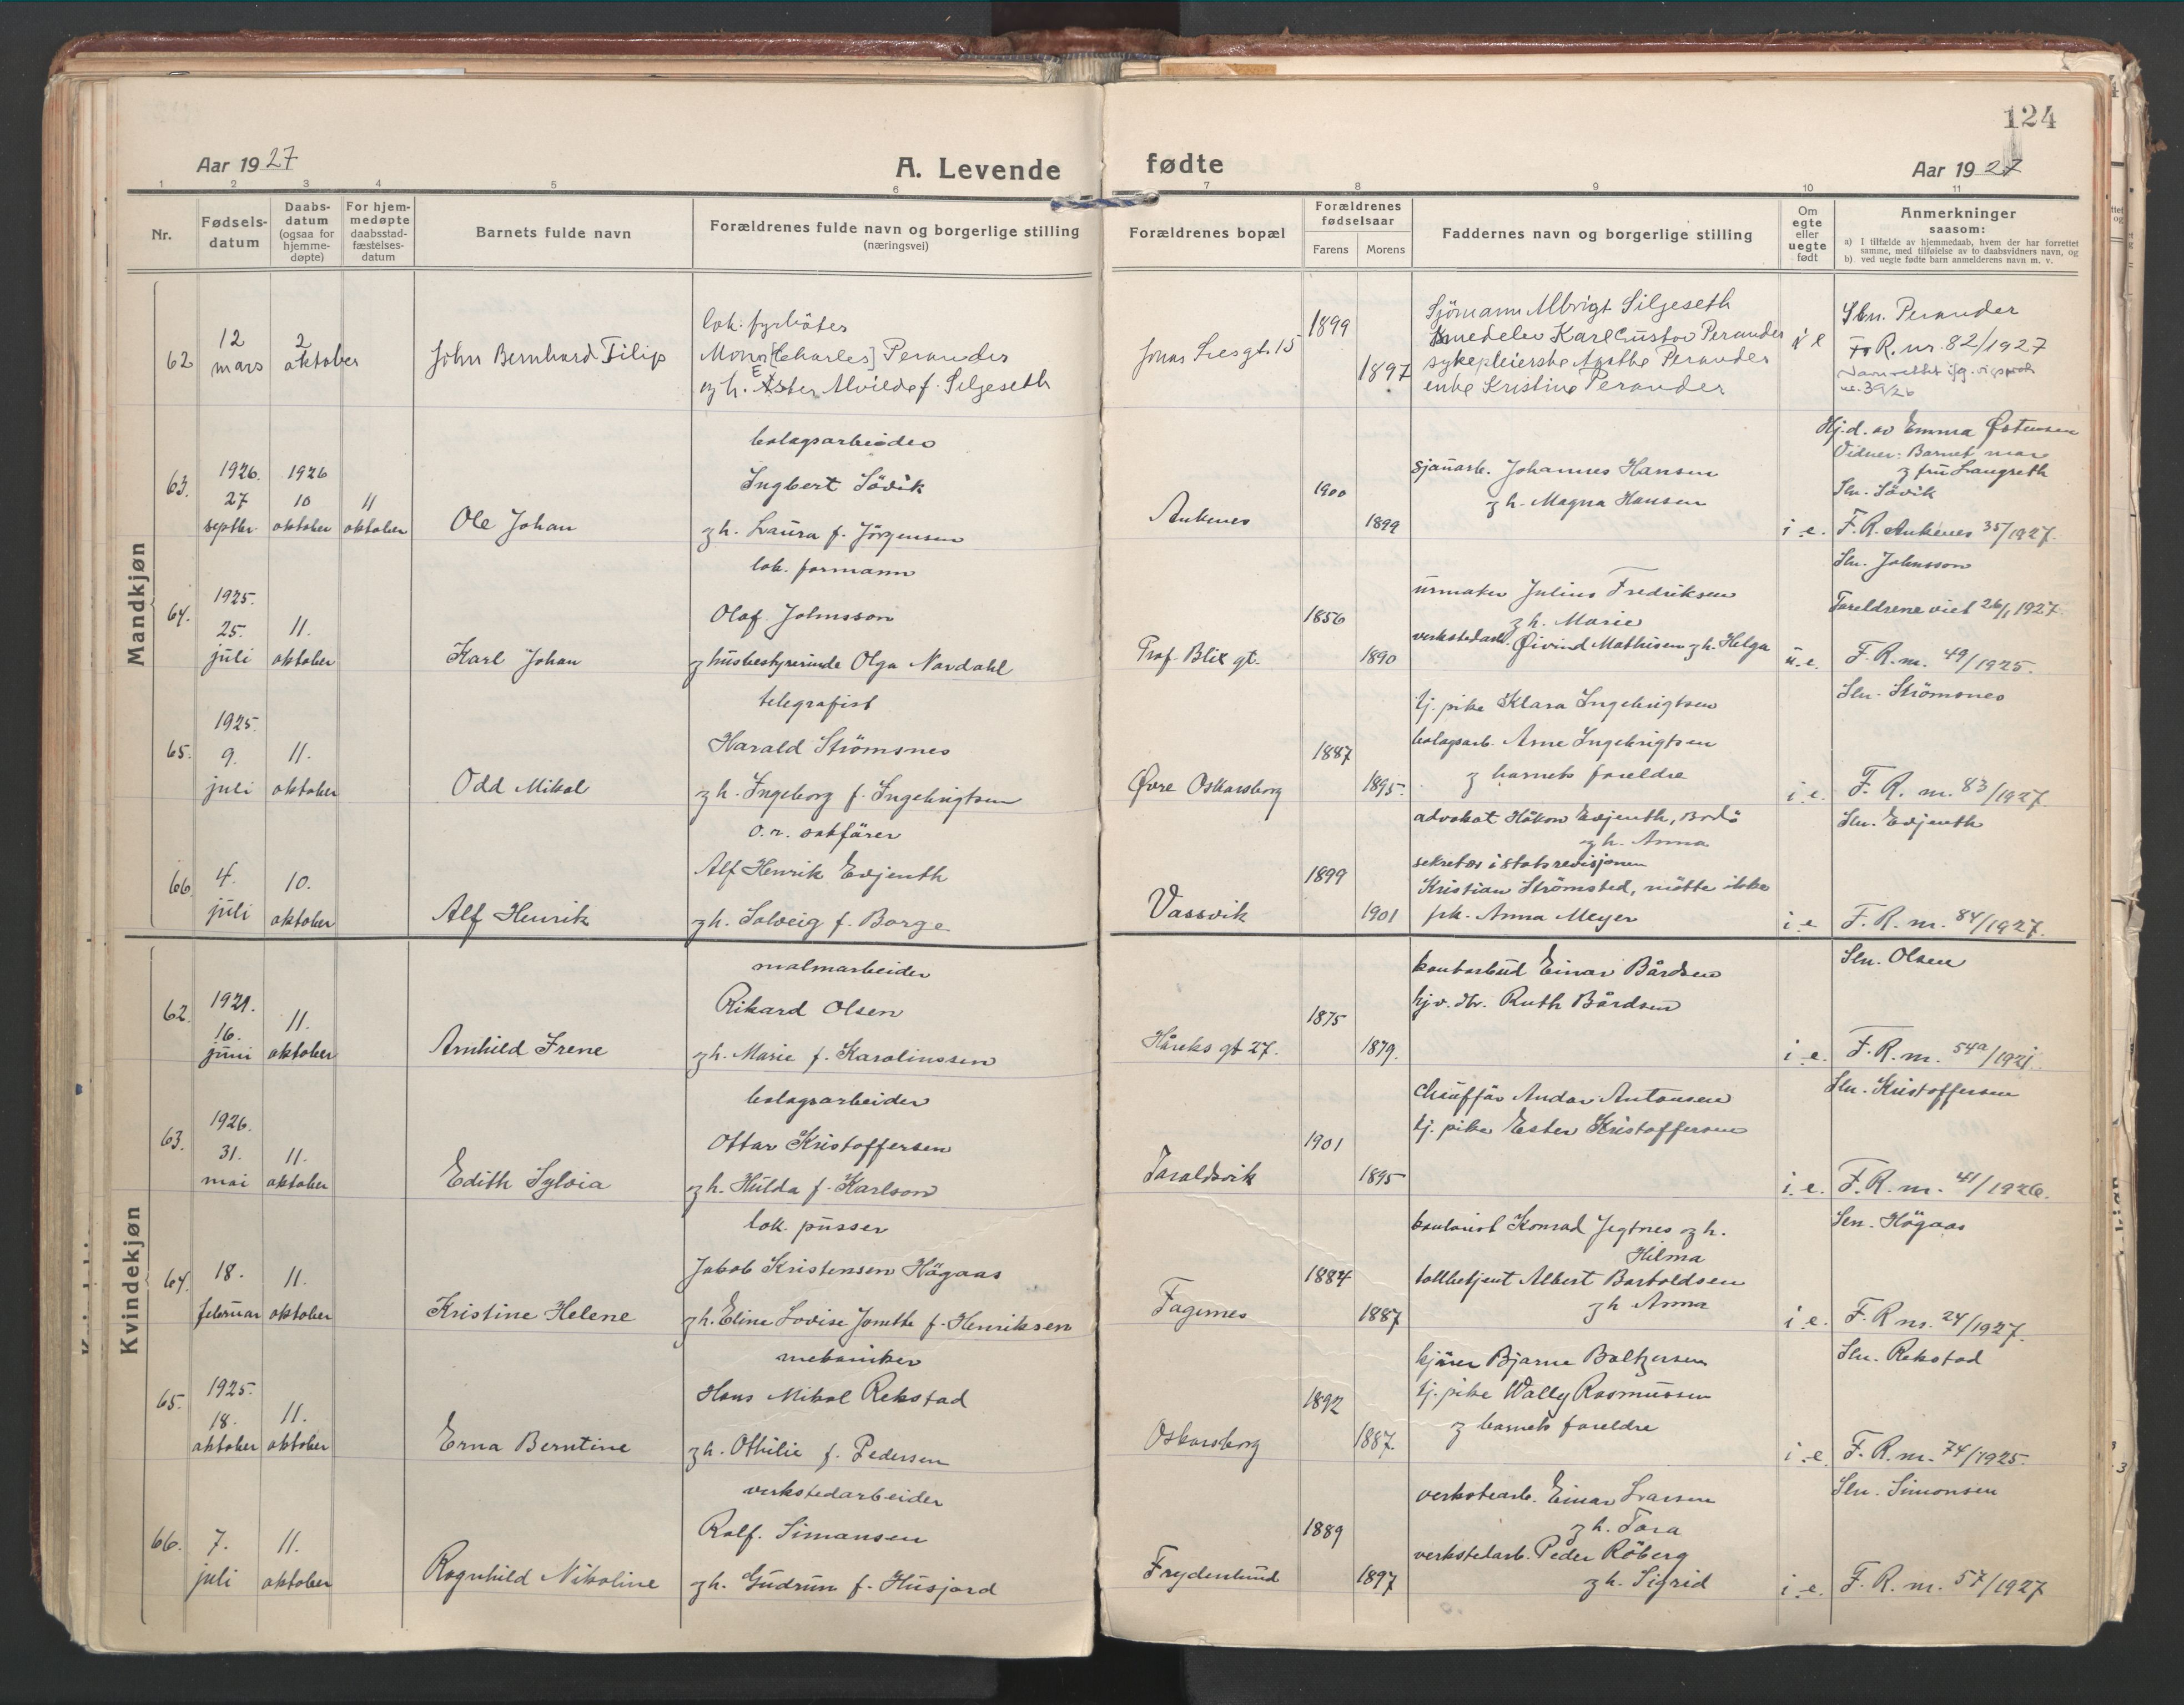 124
Aar 1927
A. Levende
fødte
Aar 1927
1 2 3 4 5 6 7 8 9 10 11
Nr.
Fødsels-
datum
Daabs-
datum
(ogsaa for
hjemme-
døpte)
For hjem-
medøpte
daabsstad-
fæstelses-
datum
Barnets fulde navn
Forældrenes fulde navn og borgerlige stilling
(næringsvei)
Forældrenes bopæl
Forældrenes
fødselsaar
Farens Morens
Faddernes navn og borgerlige stilling
Om
egte
eller
uegte
født
Anmerkninger
saasom:
a) I tilfælde av hjemmedaab, hvem der har forrettet
samme, med tilføielse av to daabsvidners navn, og
b) ved uegte fødte barn anmelderens navn m. v.
Mandkjøn
62
12
mars
2
oktober
John Bernhard Filip
lok. fyrbøter
[Charles] Perander
g h. Ester Alvilde f. Siljeseth
Jonas Liesgt. 15
1899
1897
Sjömann Albrigt Siljeseth
Karl Gustav Perander
sykepleierske Agathe Perander
enke Kristine Perander
i e
Sln. Perander
F. R. nr. 82/1927
nr. 39/26
63.
1926.
27
septbr.
1926
10
oktober
11
oktober
Ole Johan
bolagsarbeider
Ingbert Sövik
g h. Laura f. Jörgensen
Ankenes
1900
1899
sjauarb. Johannes Hansen
g h. Magna Hansen
i. e.
Hj.d. av Emma Østensen
Vidner: Barnet mor
g fru Langseth
Sln. Sövik
F. R. Ankenes 35/1927.
64.
1925.
25.
juli
11.
oktober
Karl Johan
lok. formann
Olaf Johnsson
g husbestyrerinde Olga Nordahl
Prof. Blix gt.
1856
1890
urmaker Julius Fredriksen
g h. Marie
verkstedarb. Øivind Mathisen g h. Helga
u. e.
Sln. Johnsson
Foreldrene viet 26/1 1927.
F. R. nr. 49/1925.
65.
1925.
9.
juli
11.
oktober
Odd Mikal
telegrafist
Harald Strömsnes
g h. Ingeborg f. Ingebrigtsen
Øvre Oskarsborg
1887
1895.
tj. pike Klara Ingebrigtsen
bolagsarb. Arne Ingebrigtsen
g barnets foreldre
i. e.
Sln. Strömsnes
F. R. nr. 83/1927.
66.
4.
juli
10.
oktober
Alf Henrik
o.r. sakförer
Alf Henrik Evjenth
g h. Solveig f. Borge
Vassvik
1899
1901
advokat Håkon Evjenth, Bodö
g h. Anna
sekretær i statsrevisjonen
Kristian Strömsted, mötte ikke
frk. Anna Meyer
i e
Sln. Evjenth
F. R. nr. 84/1927.
Kvindekjøn
62.
1921.
16.
juni
11.
oktober
Arnhild Irene
malmarbeider
Rikard Olsen
g h. Marie f. Karolinssen
Håreks gt 27.
1875
1879.
kontorbud Einar Bårdsen
hj.v. dtr. Ruth Bårdsen
i e.
Sln. Olsen
F. R. nr. 54a/1921.
63.
1926.
31.
mai
11.
oktober
Edith Sylvia
bolagsarbeider
Ottar Kristoffersen
g h. Hulda f. Karlson
Taraldsvik
1901
1895
chaufför Andor Antonsen
tj. pike Ester Kristoffersen
i. e.
Sln. Kristoffersen
F. R. nr. 41/1926.
64.
18.
februar
11.
oktober
Kristine Helene
lok. pusser
Jakob Kristensen Högaas
g h. Eline Lovise Jonette f. Henriksen
Fagernes
1884
1887
kontorist Konrad Jegtnes g h.
Hilma
tollbetjent Albert Bartoldsen
g h Anna
i e.
Sln. Högaas
F. R nr. 24/1927.
65.
1925.
18.
oktober
11.
oktober
Erna Berntine
mekaniker
Hans Mikal Rekstad
g h. Othilie f. Pedersen
Oskarsborg
1892
1887.
kjörer Bjarne Baltzersen
tj. pike Wally Rasmussen
g barnets foreldre
i e.
Sln. Rekstad
F. R. nr. 74/1925.
66.
7.
juli
11.
oktober
Ragnhild Nikoline
verkstedarbeider
Rolf. Simonsen
g h. Gudrun f. Husjord
Frydenlund
1889
1897
verkstearb. Einar Larsen
g h. Tora
verkstedarb. Peder Röberg
g h. Sigrid
i e.
Sln. Simonsen
F. R. nr. 57/1927